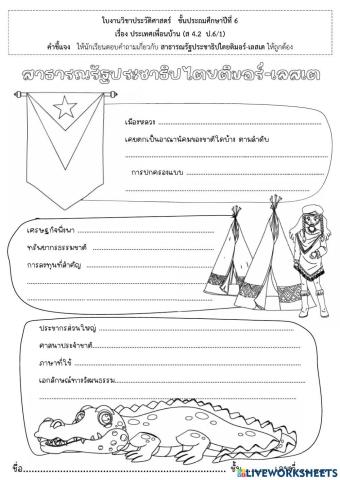 ใบงานวิชาประวัติศาสตร์ ชั้นประถมศึกษาปีที่ 6
เรื่อง ประเทศเพื่อนบ้าน (ส 4.2 ป.6/1)
คำชี้แจง ให้นักเรียนตอบคำถามเกี่ยวกับ สาธารณรัฐประชาธิปไตยติมอร์-เลสเต ให้ถูกต้อง
สาธารณรัฐประชาธิปไตยติมอร์-เลสเต
เมืองหลวง
เคยตกเป็นอาณานิคมของชาติใดบ้าง ตามลำดับ
การปกครองแบบ
เศรษฐกิจพึ่งพา
ทรัพยากรธรรมชาติ
การลงทุนที่สำคัญ
ประชากรส่วนใหญ่
ศาสนาประจำชาติ
ภาษาที่ใช้
เอกลักษณ์ทางวัฒนธรรม
ชื่อ ชั้น เลขที่
LIVEWORKSHEETS